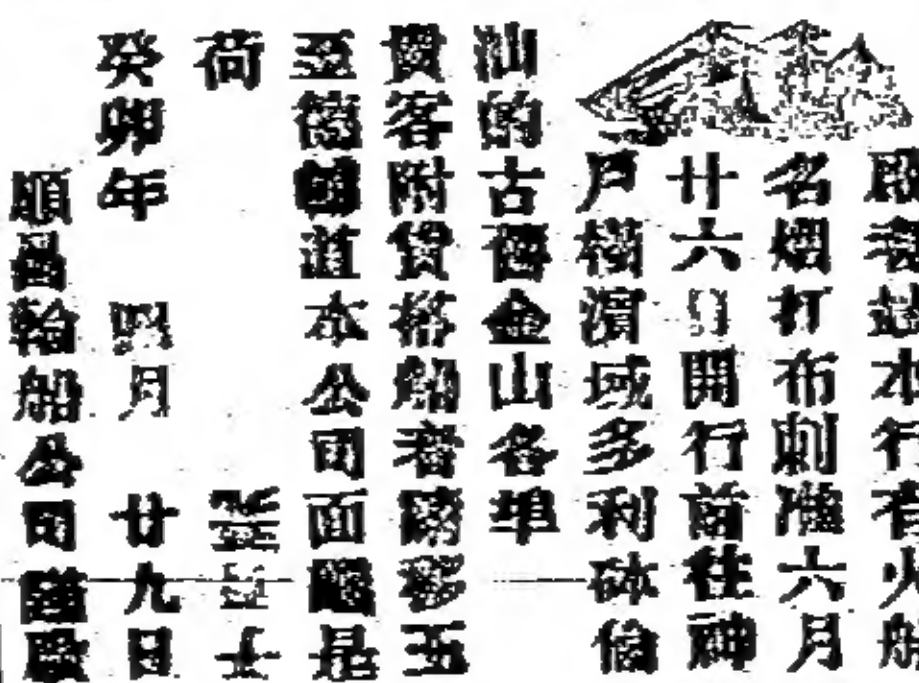 啟者茲本行有火船
名煙打布刺
六月
廿六日開行前往神
戶橫濱域多利砵倫
汕的古舊金山各埠
貴客附貨搭船者請移玉
至德輔道本公司面議是
荷
癸卯年 月廿九日
順昌輪船公司謹啟